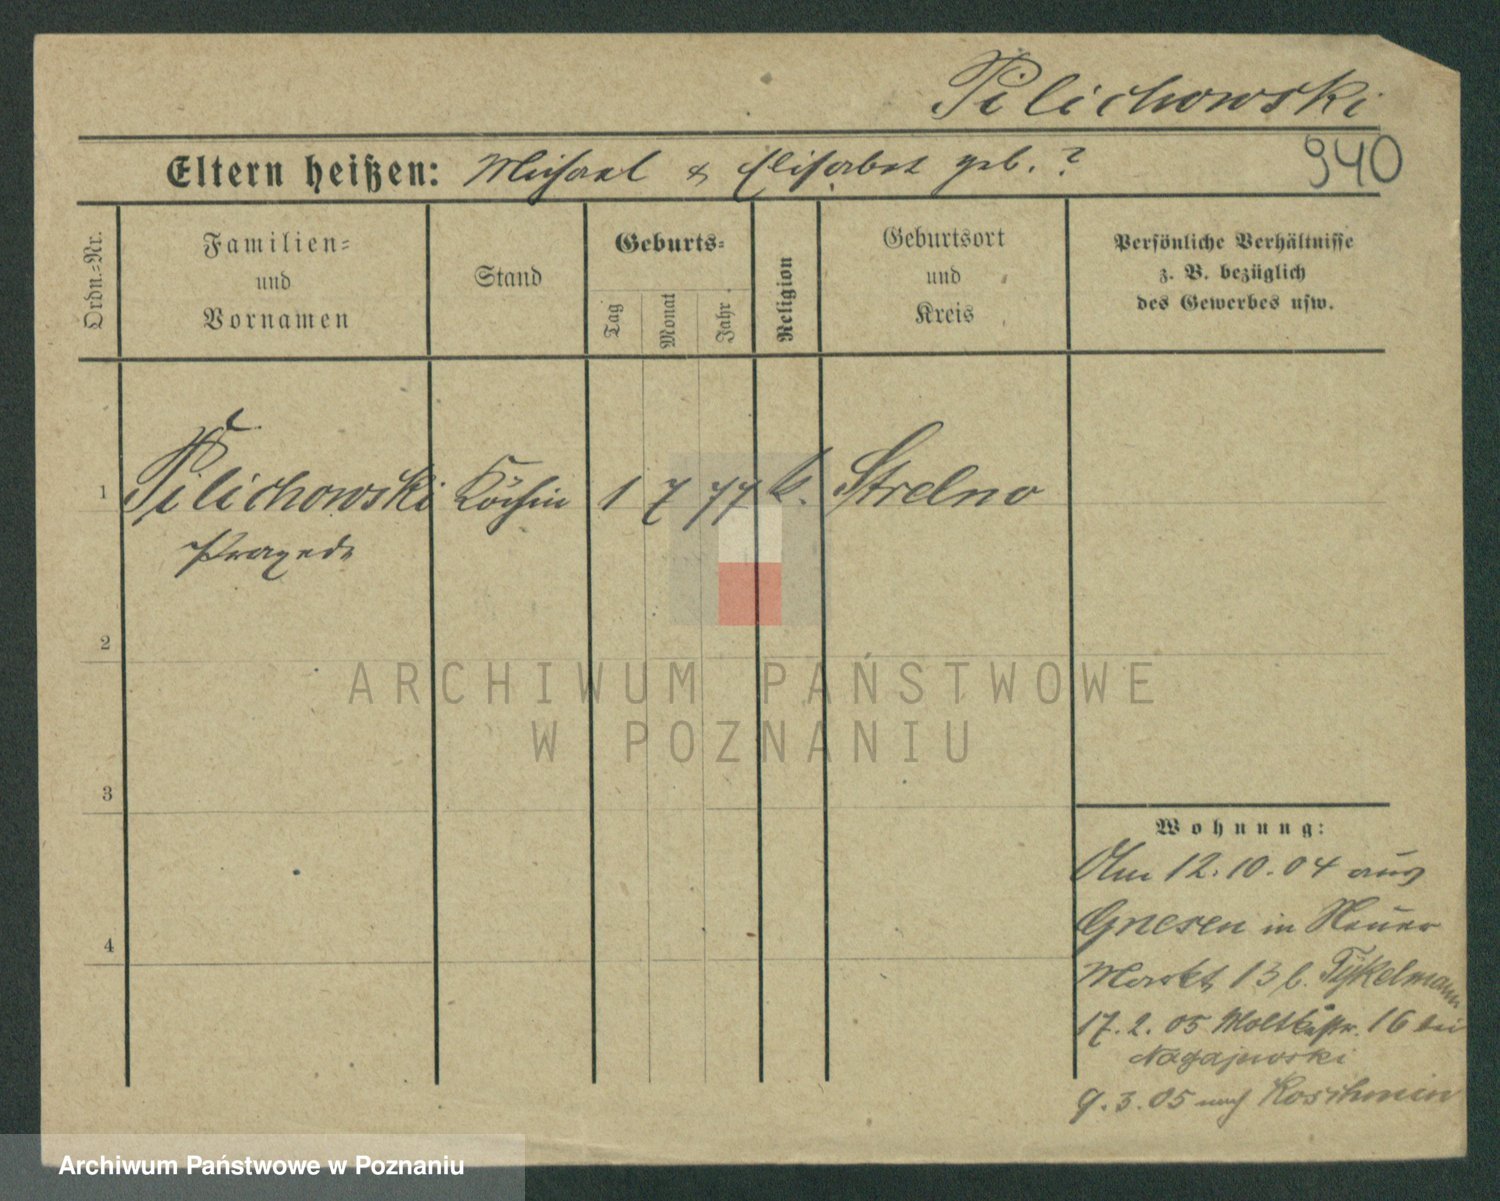 Pilichowski
940
Eltern heißen: Michael & Elisabet geb. ?
Ordn.-Nr.
Familien-
und
Vornamen
Stand
Geburts-
Tag
Monat
Jahr
Religion
Geburtsort
und
Kreis
Persönliche Verhältnisse
z. B. bezüglich
des Gewerbes usw.
1 Pilichowski Köchin 1 7 77 k. Strelno
Praxeda
2
3
4
ARCHIWUM PAŃSTWOWE
W POZNANIU
Wohnung:
Am 12.10.04 aus
Gnesen in Neuer
Markt 13 b. Tykelmann
17.2.05 Moltkestr. 16 bei
Nagajewski
9.3.05 nach Koschmin
Archiwum Państwowe w Poznaniu